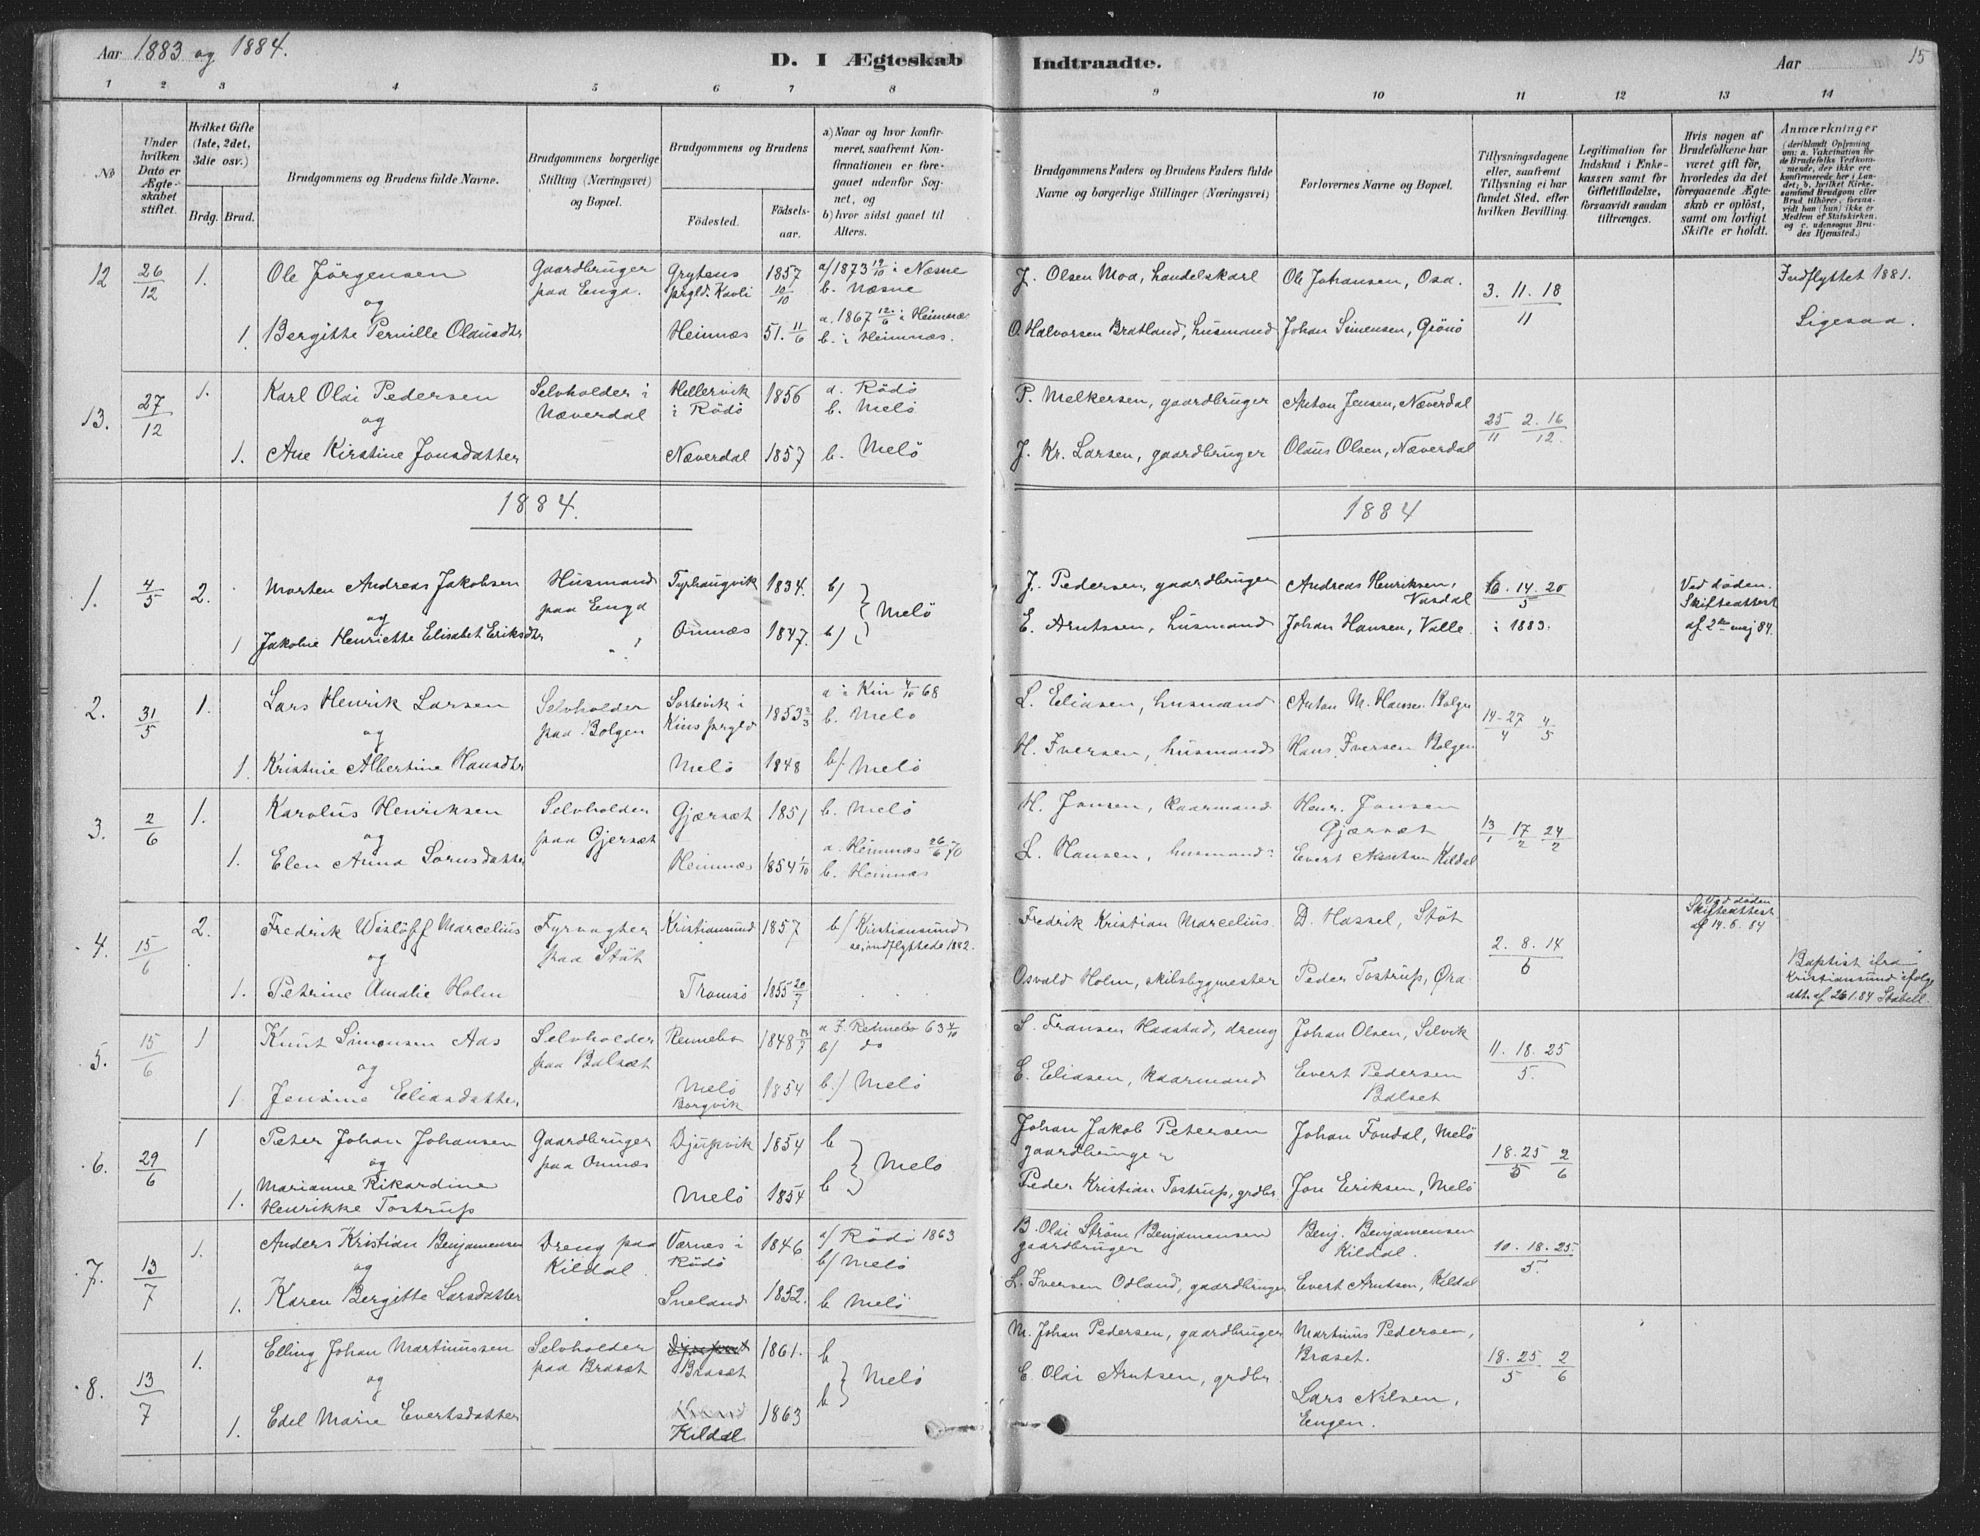 Aar 1883 og 1884.
D. I Ægteskab Indtraadte.
Aar 15
1 2 3 4 5 6 7 8 9 10 11 12 13 14
No
Under hvilken Dato er Ægteskabet stiftet.
Hvilket Gifte (1ste, 2det, 3die osv.)
Brdg. Brud.
Brudgommens og Brudens fulde Navne.
Brudgommens borgerlige Stilling (Næringsvei) og Bopæl.
Brudgommens og Brudens
Fødested. Fødselsaar.
a) Naar og hvor konfirmeret, saafremt Konfirmationen er foregaaet udenfor Sognet, og
b) hvor sidst gaaet til Alters.
Brudgommens Faders og Brudens Faders fulde Navne og borgerlige Stillinger (Næringsvei)
Forlovernes Navne og Bopæl.
Tillysningsdagene eller, saafremt Tillysning ei har fundet Sted, efter hvilken Bevilling.
Legitimation for Indskud i Enkekassen samt for Giftetilladelse, forsaavidt saadan tiltrænges.
Hvis nogen af Brudefolkene har været gift før, hvorledes da det foregaaende Ægteskab er opløst, samt om lovligt Skifte er holdt.
Anmærkninger
12 26/12 1. Ole Jörgensen Gaardbruger paa Enga. Grytens prgld. Kavli 1857 10/10 a/ 1873 19/10 i Næsne b. Næsne J. Olsen Moa, handelskarl Ole Johansen, Osa. 3. 11. 18/11 Indflyttet 1881.
og
1. Bergitte Pernille Olausdtr Heimnæs 51. 11/6 a. 1867 12/6 i Heimnæs b. i Heimnæs. O. Halvorsen Bratland, husmand Johan Simensen, Grönö Ligesaa.
13. 27/12 1. Karl Olai Pedersen Selvholder i Næverdal Hellervik i Rödö 1856 a. Rödö b. Melö P. Melkersen, gaardbruger Anton Jensen, Næverdal 25/11 2. 16/12.
og
1. Ane Kirstine Jonsdatter Næverdal 1857 b. Melö J. Kr. Larsen, gaardbruger Olaus Olsen, Næverdal
1884. 1884
1. 4/5 2. Morten Andreas Jakobsen Husmand paa Enga 1834. b/ Melö J. Pedersen, gaardbruger Andreas Henriksen, Vasdal 6. 14. 20/5 i 1883. Ved döden. Skifteattest af 2den maj 84.
og
1 Jakobine Henriette Elisabet Eriksdtr Onnæs 1847. b/ E. Arntssen, husmand Johan Hansen, Valle.
2. 31/5 1. Lars Henrik Larsen Selvholder paa Bolgen Sortevik i Kins prgld 1853 a i Kin 4/10 68 b. Melö L. Eliasen, husmand Anton M. Hansen Bolgen 14-27/4 4/5
og
1. Kristine Albertine Hansdtr Melö 1848 b/ Melö H. Iversen, husmand Hans Iversen Bolgen
3. 2/6 1. Karolus Henriksen Selvholder paa Gjersæt Gjærsæt 1851 b. Melö H. Jonsen, kaarmand Henr. Jonsen Gjærsæt 13/1 17/2 24/2
og
1. Elen Anna Larsdatter Heimnæs 1854 1/10 a. Heimnæs 26/6 70 b. Heimnæs L. Hansen, husmand Evert Arntsen Kildal
4. 15/6 2. Fredrik Wislöff Marcelius Fyrvogter paa Stöt Kristiansund 1857 b/ Kristiansund indflyttede 1882. Fredrik Kristian Marcelius. D. Hassel, Stöt 2. 8. 14/6 Ved döden Skifteattest af 14.6.84
og
1. Petrine Amalie Holm Tromsö 1855 20/7 Osvald Holm, skibsbygmester Peder Tostrup, Öra Baptist ifra Kristiansund ifölge att. af 26.1.84 Stabell.
5. 15/6 1 Knut Simonsen Aas Selvholder paa Balsæt Rennebo 1848 a. I. Rennebo 63 4/10 b/ do S. Fransen Haastad, dreng Johan Olsen, Selvik 11. 18. 25/5.
og
1. Jensine Eliasdatter Melö Borgvik 1854 b./ Melö E. Eliasen, kaarmand Evert Pedersen Balset
6. 29/6 1 Peter Johan Johansen Gaardbruger paa Onnæs Djupvik 1854 b Melö Johan Jakob Petersen gaardbruger Johan Fondal, Melö 18. 25/5 2/6
og
1. Marianne Rikardine Henrikke Tostrup Melö 1854 b Peder Kristian Tostrup, grdbr. Jon Eriksen, Melö
7. 13/7 1. Anders Kristian Benjamensen Dreng paa Kildal Værnes i Rödö 1846 a/ Rödö 1863 b/ Melö B. Olai Ström Benjamensen gaardbruger Benj. Benjamensen Kildal. 10. 18. 25./5.
og
1. Karen Bergitte Larsdatter Sneland 1852. b Melö L. Iversen Odland, gaardbruger Evert Arntsen, Kildal
8. 13/7 1. Elling Johan Martinussen Selvholder paa Braset Braset 1861. b Melö M. Johan Pedersen, gaardbruger Martinus Pedersen, Braset. 18. 25/5 2/6
og
1 Edel Marie Evertsdatter Kildal 1863 b E. Olai Arntsen, grdbr. Lars Nilsen, Engen.